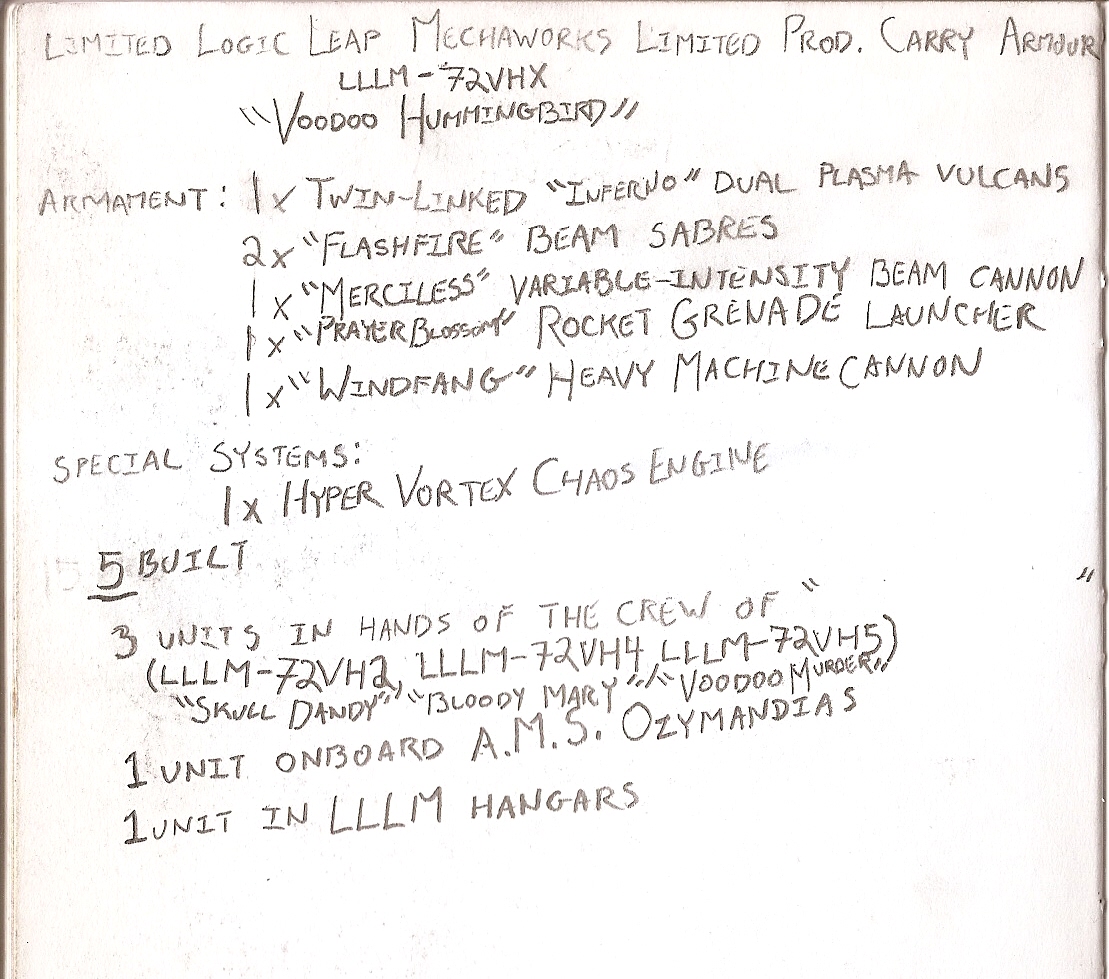 LIMITED LOGIC LEAP MECHAWORKS LIMITED PROD. CARRY ARMOUR
LLLM-72VHX
"VOODOO HUMMINGBIRD"
ARMAMENT: 1x TWIN-LINKED "INFERNO" DUAL PLASMA VULCANS
2x "FLASHFIRE" BEAM SABRES
1x "MERCILESS" VARIABLE-INTENSITY BEAM CANNON
1x "PRAYERBLOSSOM" ROCKET GRENADE LAUNCHER
1x "WINDFANG" HEAVY MACHINE CANNON
SPECIAL SYSTEMS:
1x HYPER VORTEX CHAOS ENGINE
5 BUILT
3 UNITS IN HANDS OF THE CREW OF " "
(LLLM-72VH2, LLLM-72VH4, LLLM-72VH5)
"SKULL DANDY" "BLOODY MARY" / "VOODOO MURDER"
1 UNIT ONBOARD A.M.S. OZYMANDIAS
1 UNIT IN LLLM HANGARS